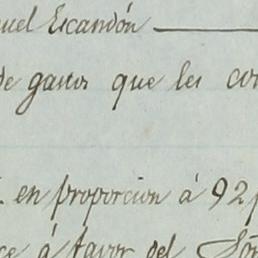 uel Escandón
de gastos que les co
en proporcion á 92
á favor del Sōr